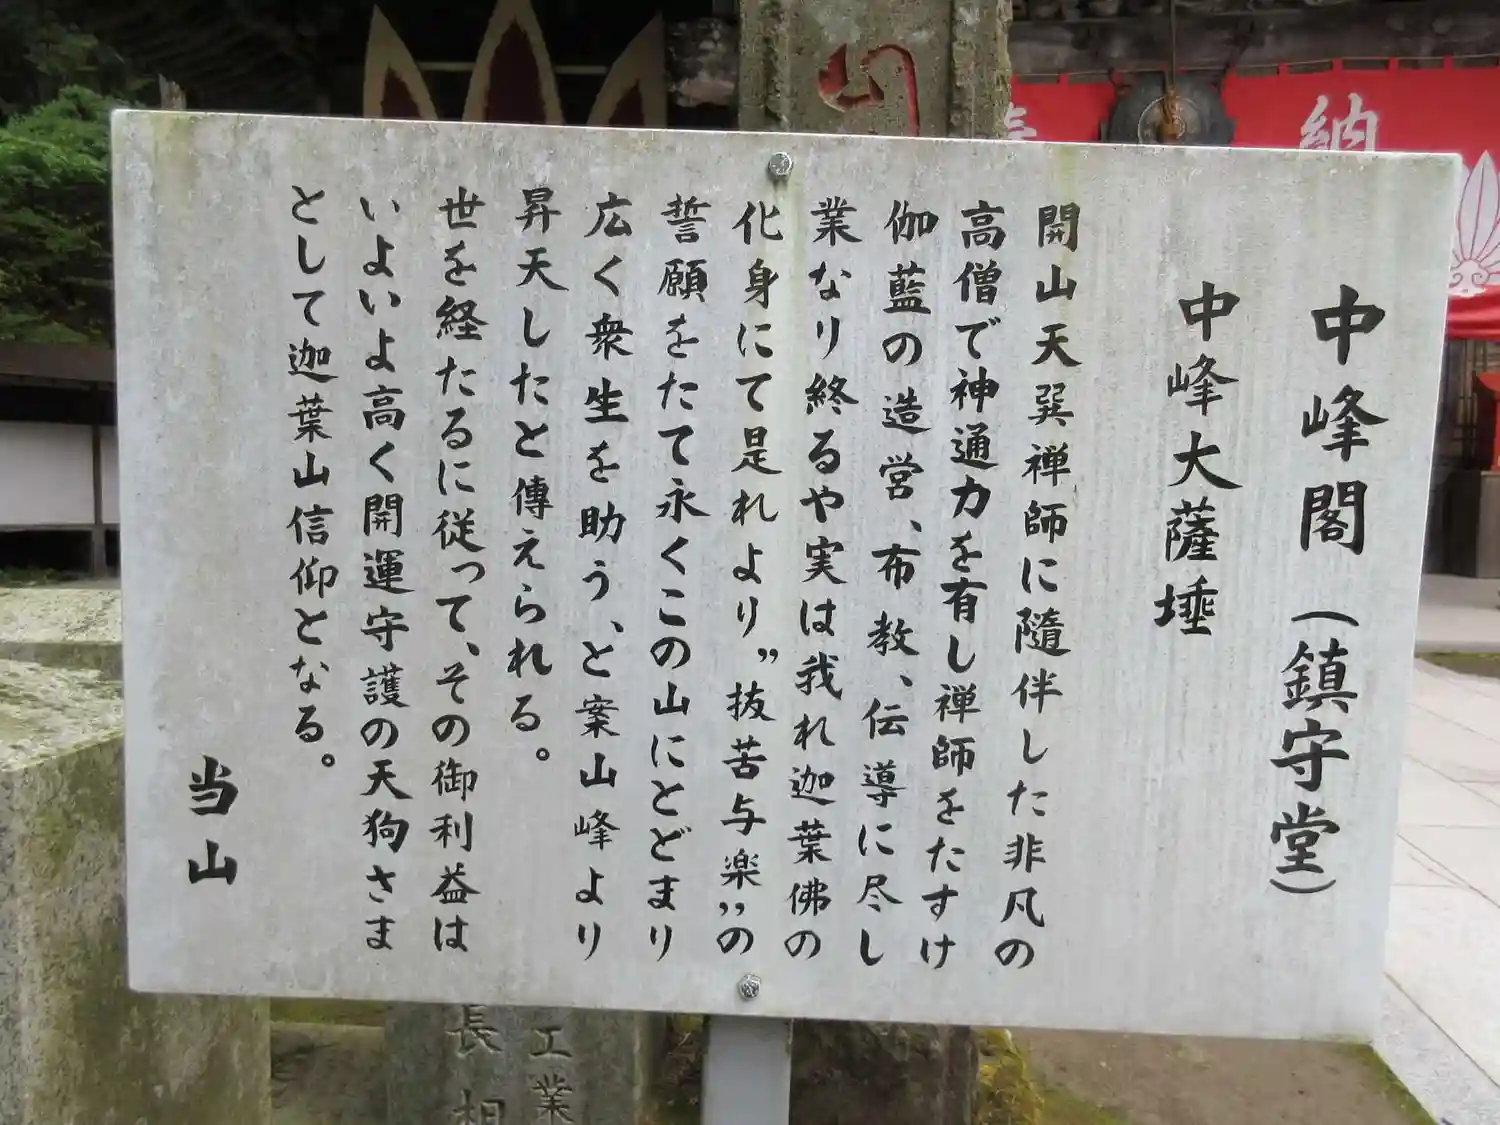 中峰閣(鎮守堂)
中峰大薩埵
開山天巽禅師に隨伴した非凡の
高僧で神通力を有し禅師をたすけ
伽藍の造営、布教、伝導に尽し
業なり終るや実は我れ迦葉佛の
化身にて是れより〝抜苦与楽〟の
誓願をたて永くこの山にとどまり
広く衆生を助う、と案山峰より
昇天したと傳えられる。
世を経たるに従って、その御利益は
いよいよ高く開運守護の天狗さま
として迦葉山信仰となる。
当山
納
工業
長相